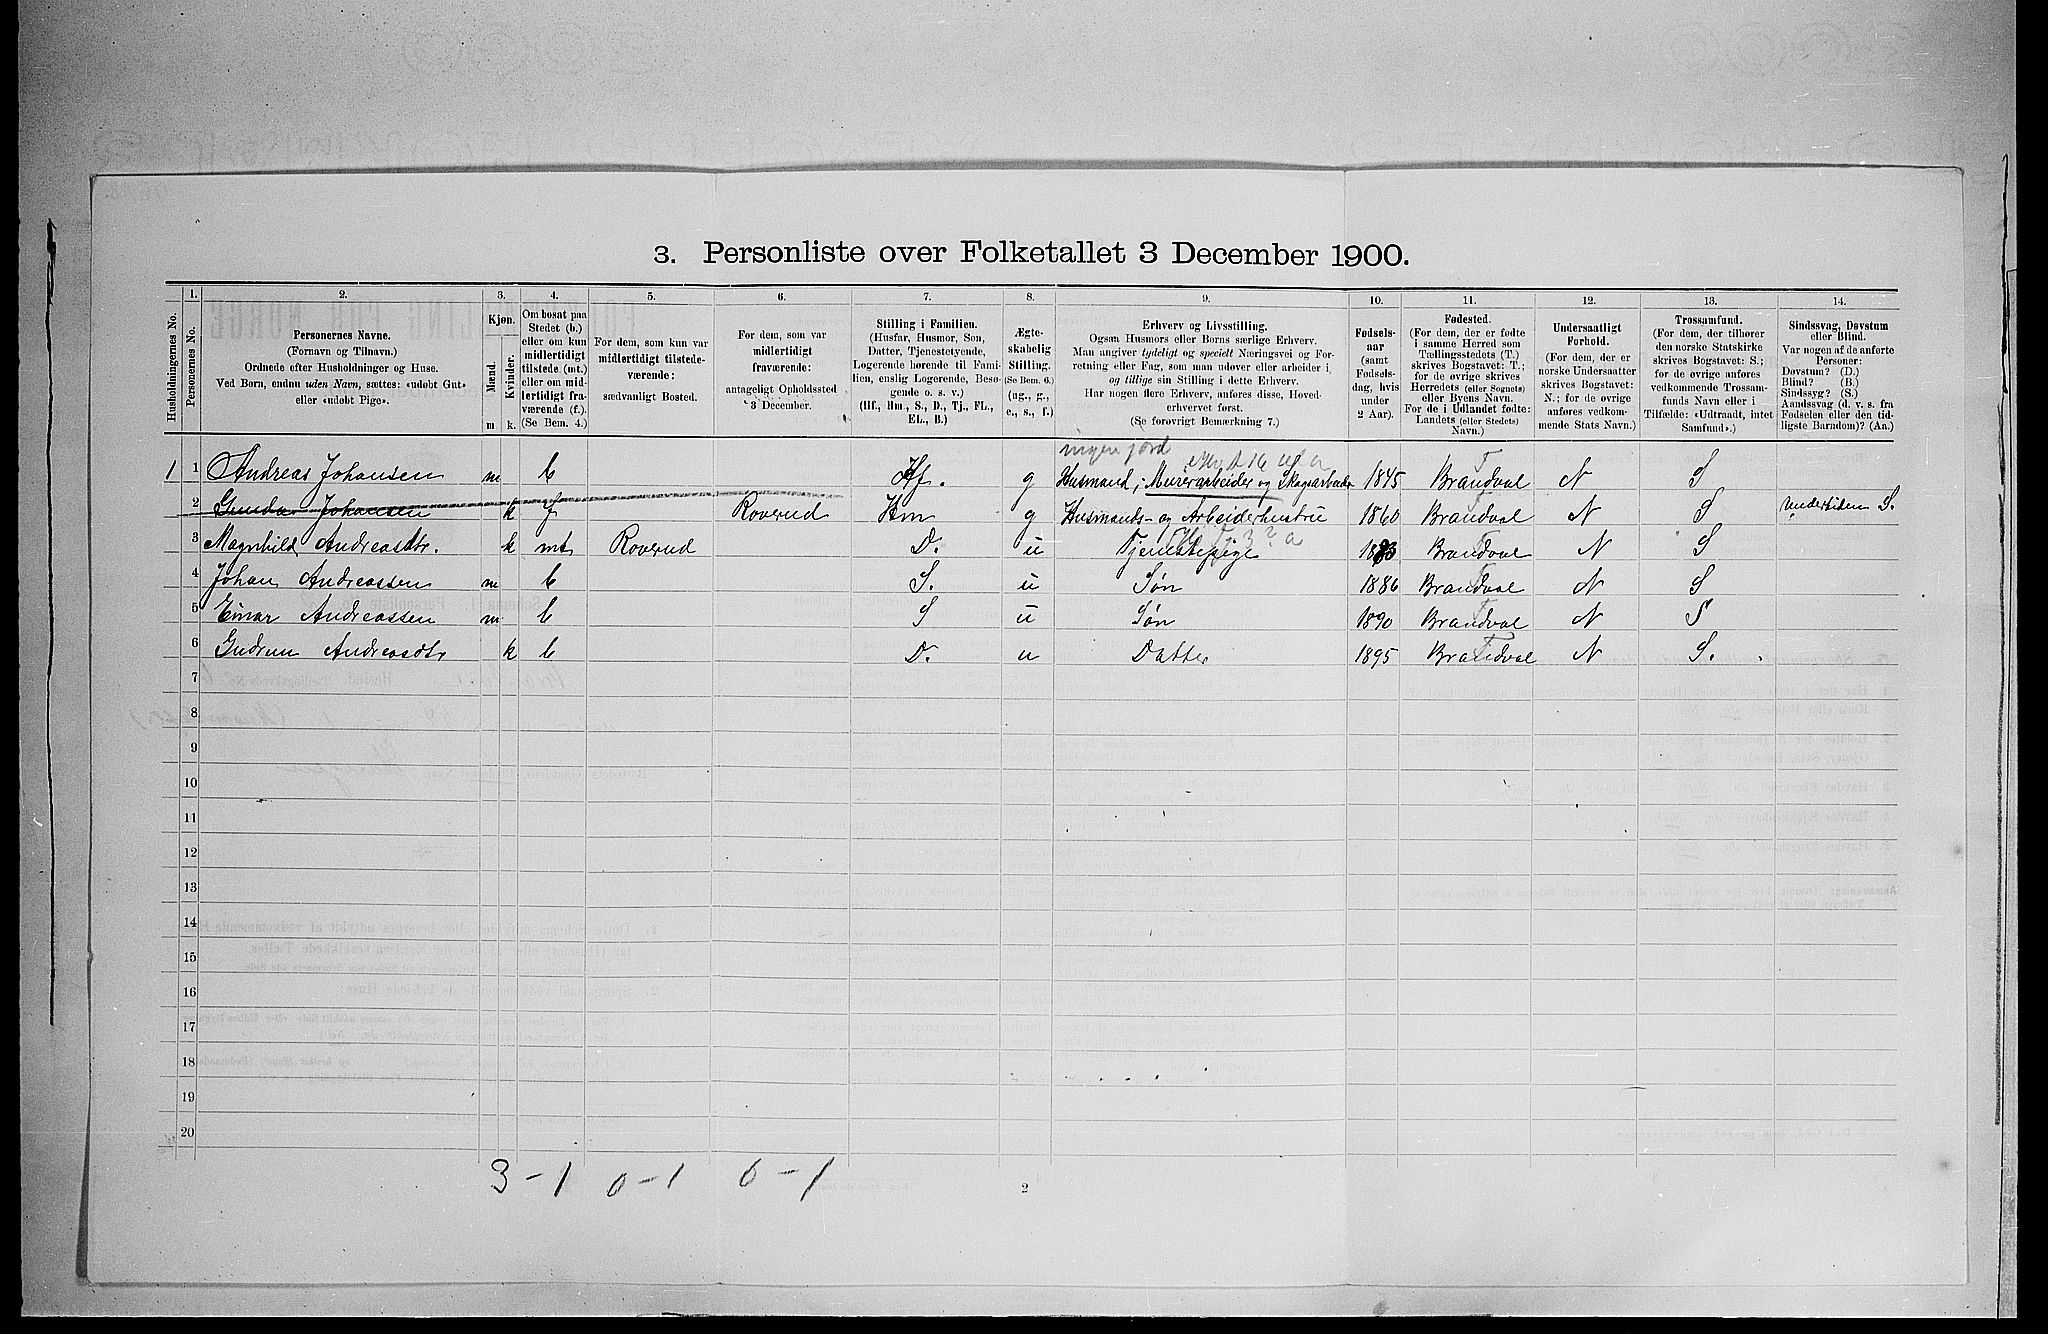 3. Personliste over Folketallet 3 December 1900.
Husholdningernes No.
1.
Personernes No.
2.
Personernes Navne.
(Fornavn og Tilnavn.)
Ordnede efter Husholdninger og Huse.
Ved Børn, endnu uden Navn, sættes: «udøbt Gut»
eller «udøbt Pige».
3.
Kjøn.
Mænd.
Kvinder.
m
k.
4.
Om bosat paa
Stedet (b.)
eller om kun
midlertidigt
tilstede (mt.)
eller om mid-
lertidigt fra-
værende (f.)
(Se Bem. 4.)
5.
For dem, som kun var
midlertidigt tilstede-
værende:
sædvanligt Bosted.
6.
For dem, som var
midlertidigt
fraværende:
antageligt Opholdssted
3 December.
7.
Stilling i Familien.
(Husfar, Husmor, Søn,
Datter, Tjenestetyende,
Logerende hørende til Fami-
lien, enslig Logerende, Besø-
gende o. s. v.)
(Hf., Hm., S., D., Tj., FL.,
EL., B.)
8.
Ægte-
skabelig
Stilling.
(Se Bem. 6.)
(ug., g.,
e., s., f.)
9.
Erhverv og Livsstilling.
Ogsaa Husmors eller Børns særlige Erhverv.
Man angiver tydeligt og specielt Næringsvei og For-
retning eller Fag, som man udøver eller arbeider i,
og tillige sin Stilling i dette Erhverv.
Har nogen flere Erhverv, anføres disse, Hoved-
erhvervet først.
(Se forøvrigt Bemærkning 7.)
10.
Fødsels-
aar
(samt
Fødsels-
dag, hvis
under
2 Aar).
11.
Fødested.
(For dem, der er fødte
i samme Herred som
Tællingsstedets (T.)
skrives Bogstavet: T.;
for de øvrige skrives
Herredets (eller Sognets)
eller Byens Navn.
For de i Udlandet fødte:
Landets (eller Stedets)
Navn.)
12.
Undersaatligt
Forhold.
(For dem, der er
norske Undersaatter
skrives Bogstavet:
N.; for de øvrige
anføres vedkom-
mende Stats Navn.)
13.
Trossamfund.
(For dem, der tilhører
den norske Statskirke
skrives Bogstavet: S.;
for de øvrige anføres
vedkommende Trossam-
funds Navn eller i
Tilfælde: «Udtraadt, intet
Samfund».)
14.
Sindssvag, Døvstum
eller Blind.
Var nogen af de anførte
Personer:
Døvstum? (D.)
Blind? (B.)
Sindssyg? (S.)
Aandssvag (d. v. s. fra
Fødselen eller den tid-
ligste Barndom)? (Aa.)
ingen jord
1 1 Andreas Johansen m b Hf. g Husmand, Murerarbeider og Skogsarbeider 1845 Brandval T N S
2 Gunda Johansen k f Roverud Hm g Husmands- og Arbeiderhustru 1860 Brandval T N S Undertiden S.
3 Magnhild Andreasdtr. k mt Roverud D. u Tjenestepige 1883 Brandval T N S
4 Johan Andreassen m b S. u Søn 1886 Brandval T N S
5 Einar Andreassen m b S u Søn 1890 Brandval T N S
6 Gudrun Andreasdtr k b D. u Datter 1895 Brandval T N S.
7
8
9
10
11
12
13
14
15
16
17
18
19
20
3-1 0-1 0-1
2